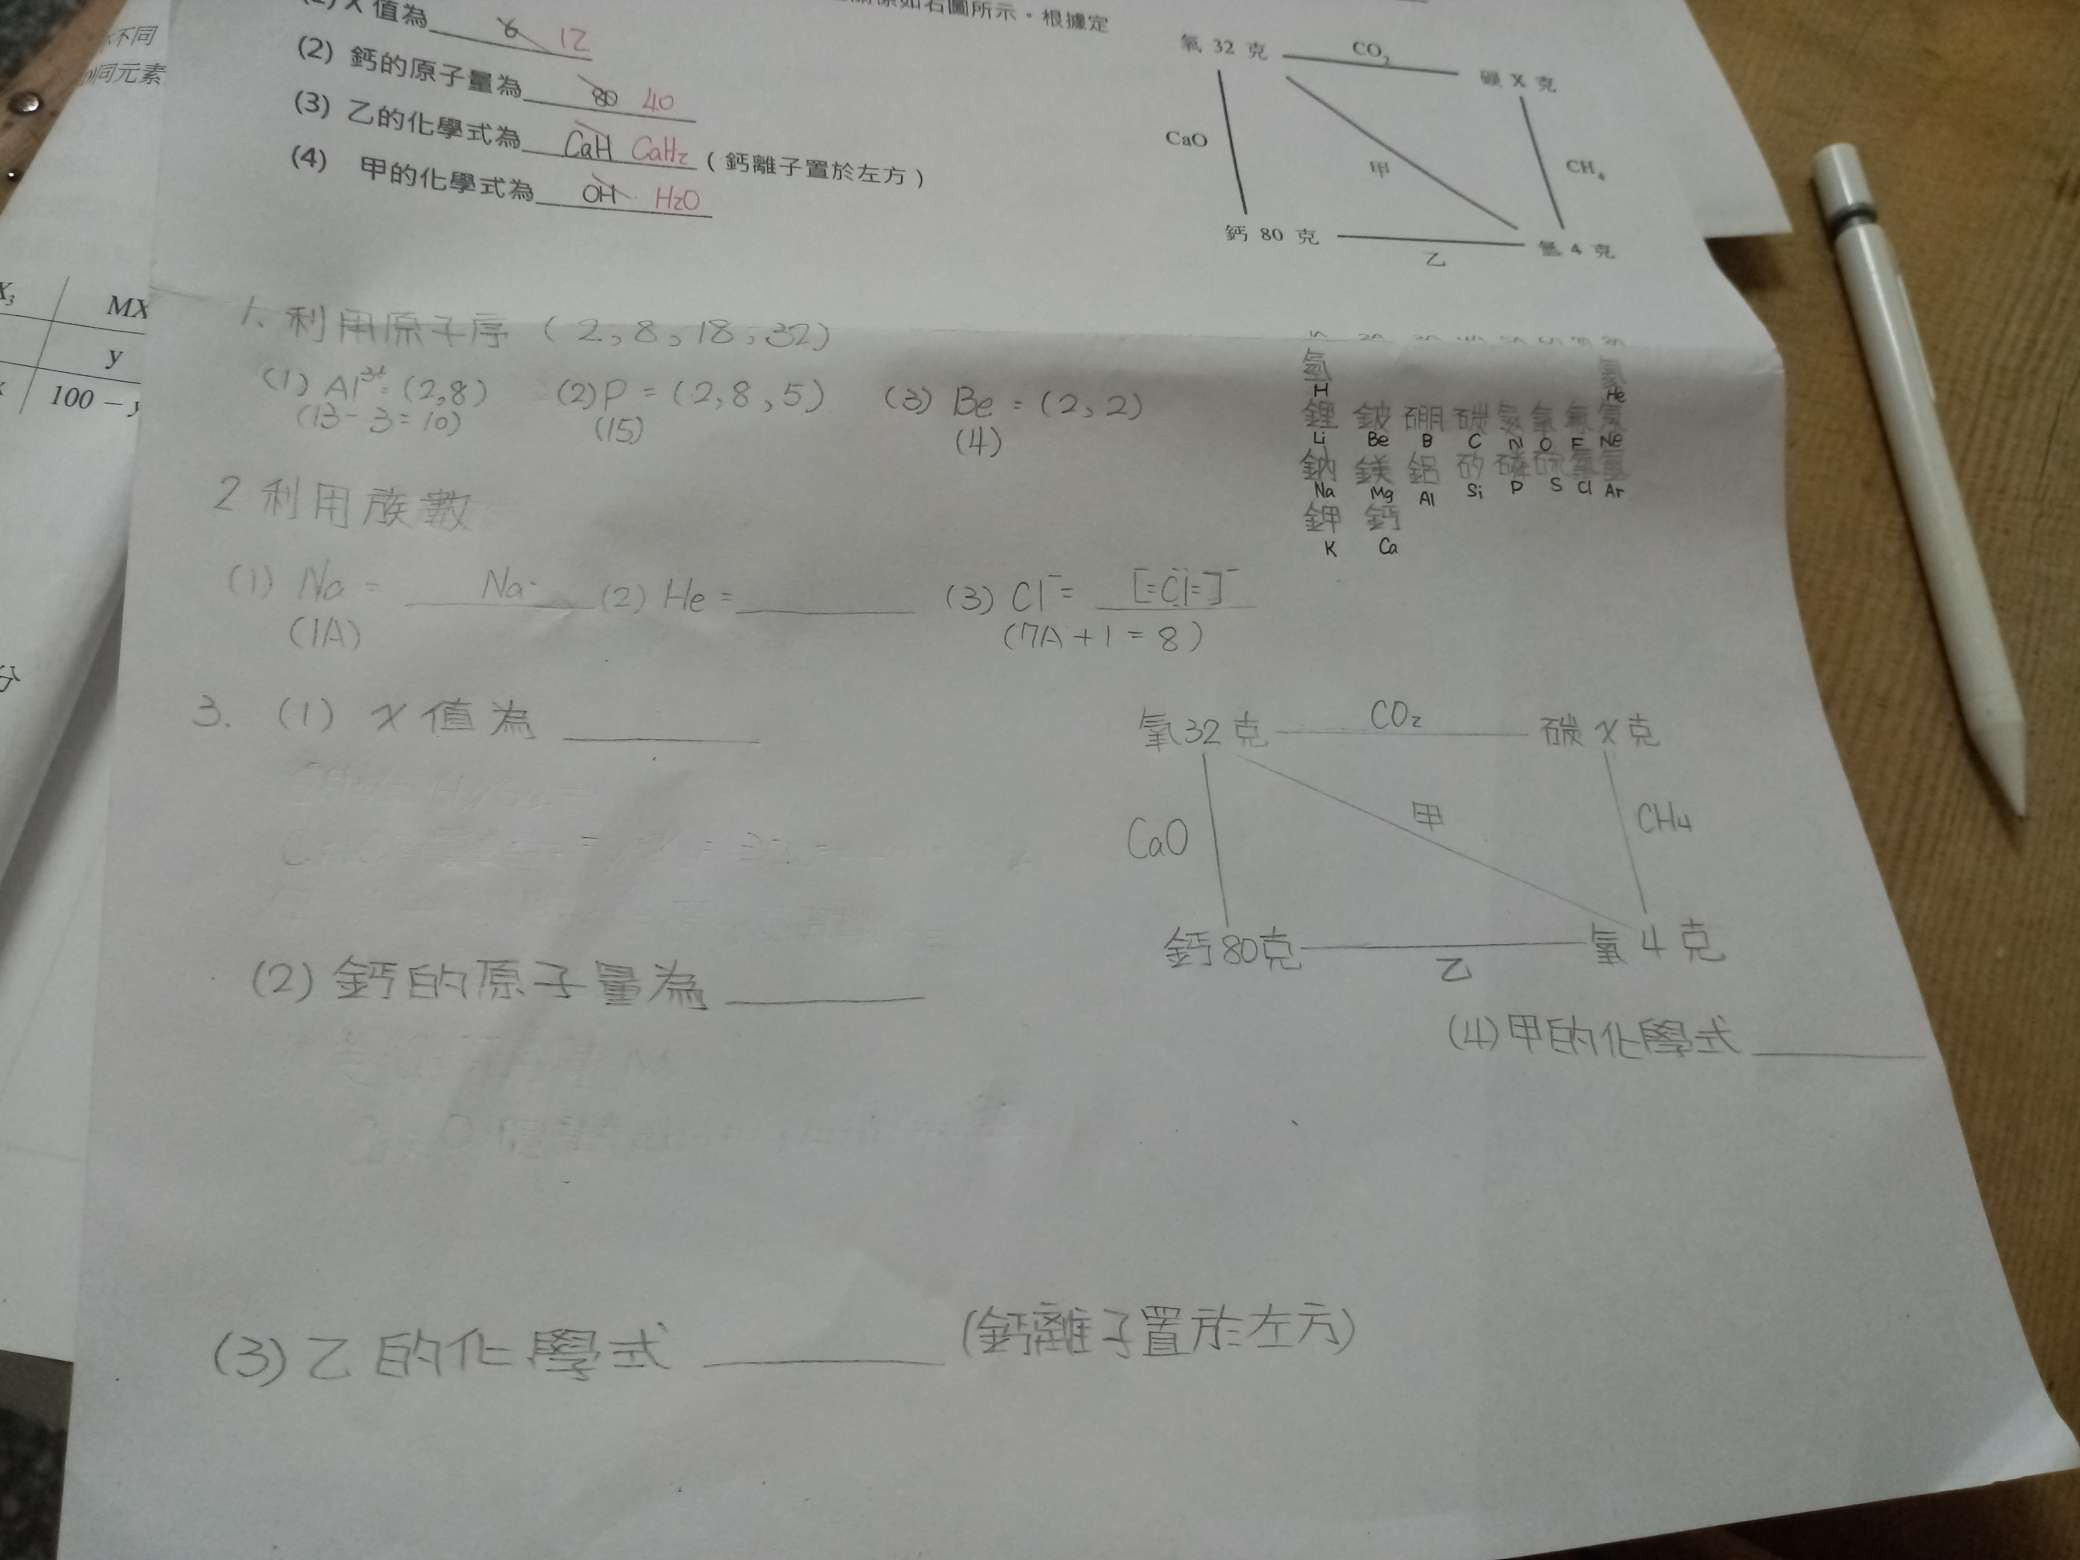 不同
同元素
X₃ MX
y
100 − y
分
X 值為 6 12
如右圖所示。根據定
(2) 鈣的原子量為 80 40
(3) 乙的化學式為 CaH CaH₂ (鈣離子置於左方)
(4) 甲的化學式為 OH H₂O
氧 32 克 CO₂ 碳 X 克
CaO 甲 CH₄
鈣 80 克 乙 氫 4 克
1. 利用原子序 (2,8,18,32)
(1) Al³⁺=(2,8) (2) P=(2,8,5) (3) Be=(2,2)
(13-3=10) (15) (4)
氫 氦
H He
鋰 鈹 硼 碳 氮 氧 氟 氖
Li Be B C N O F Ne
鈉 鎂 鋁 矽 磷 硫 氯 氬
Na Mg Al Si P S Cl Ar
鉀 鈣
K Ca
2 利用族數
(1) Na = Na· (2) He = (3) Cl⁻ = [:C̈l:]⁻
(1A) (7A+1=8)
3. (1) X 值為
氧32克 CO₂ 碳 X 克
CaO 甲 CH₄
鈣80克 乙 氫 4 克
(2) 鈣的原子量為
(4) 甲的化學式
(3) 乙的化學式 (鈣離子置於左方)